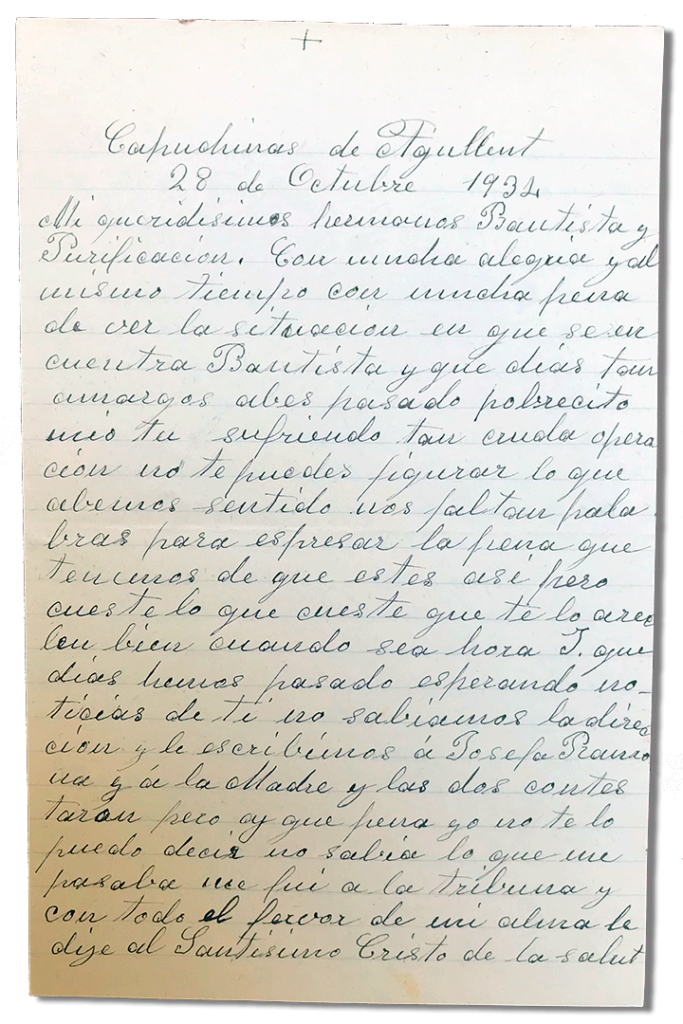 +
Capuchinas de Agullent
28 de Octubre 1934
Mi queridisimos hermanos Bautista y
Purificación. Con mucha alegria y al
mismo tiempo con mucha pena
de ver la situación en que se en
cuentra Bautista y que dias tan
amargos abes pasado pobrecito
mio tu sufriendo tan cruda opera
ción no te puedes figurar lo que
abemos sentido nos faltan pala
bras para espresar la pena que
tenemos de que estes asi pero
cueste lo que cueste que te lo areg
len bien cuando sea hora I. que
dias hemos pasado esperando no-
ticias de ti no sabiamos la direc
ción y le escribimos á Josefa Ramo
na y á la Madre y las dos contes
taron pero ay que pena yo no te lo
puedo decir no sabia lo que me
pasaba me fui a la tribuna y
con todo el fervor de mi alma le
dije al Santisimo Cristo de la salut